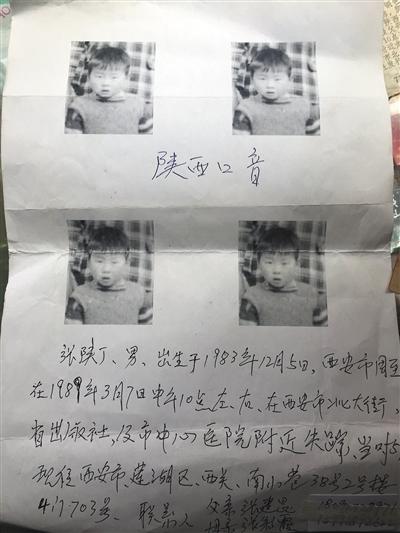 陕西口音
张陕丁、男、出生于1983年12月5日,西安市周至
在1989年3月7日中午10点左、右、在西安市北大街,
省出版社,及市中心医院附近失踪,当时5
现住西安市、莲湖区、西关、南小巷38号2号楼
4门703号、联系人 父亲张建
母亲张